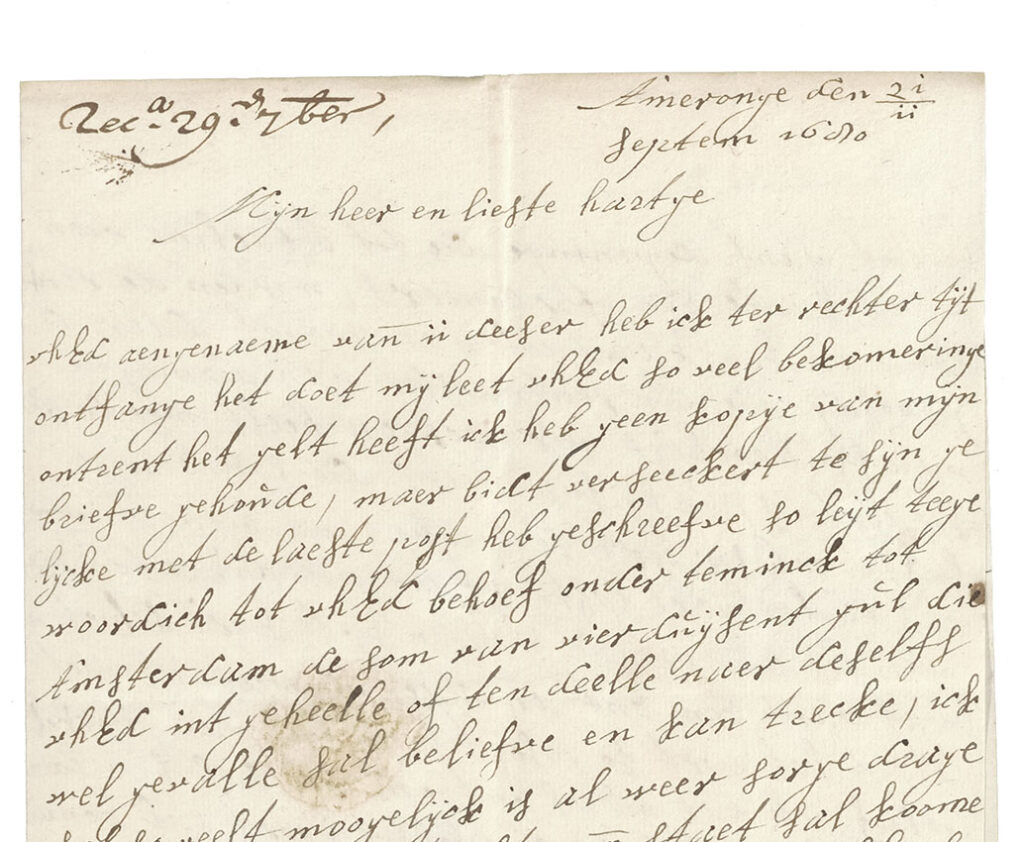 Rec.a 29.d 7ber,
Ameronge den 21/11
septem 1680
Mijn heer en liefste hartge
uhEd aengenaeme van 11 deeser heb ick ter rechter tijt
ontfange het doet mij leet uhEd so veel bekomeringe
ontrent het gelt heeft ick heb geen kopije van mijn
briefve gehoude, maer bidt verseeckert te sijn ge
lijcke met de laeste post heb geschreefve so leijt teege
woordich tot uhEd behoef onder teminck tot
Amsterdam de som van vierduijsent gul die
uhEd int geheelle of ten deelle naer deselfs
wel gevalle sal beliefve en kan trecke, ick
veelt moogelijck is al weer sorge drage
staet sal koome